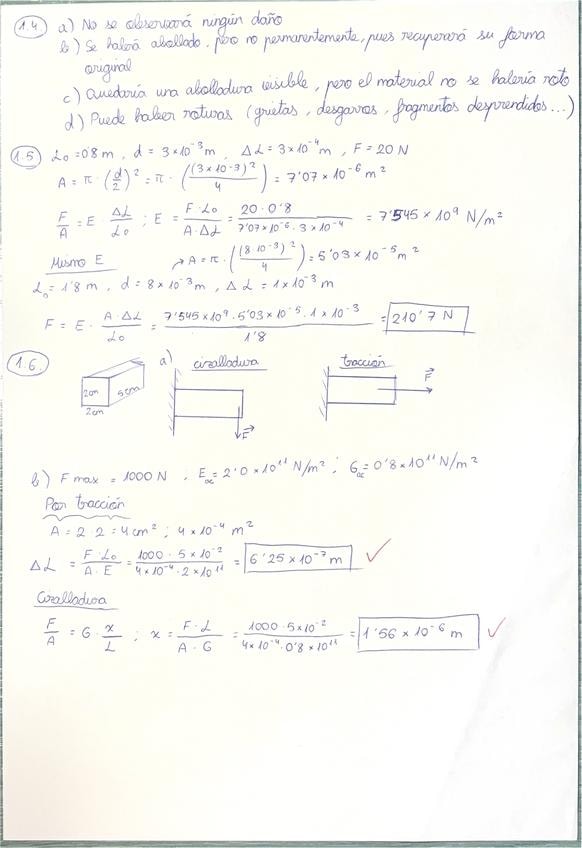 1.4 a) No se observará ningún daño
b) Se habrá abollado, pero no permanentemente, pues recuperará su forma
original
c) Quedaría una abolladura visible, pero el material no se habría roto
d) Puede haber roturas (grietas, desgarros, fragmentos desprendidos...)
1.5 L₀ = 0'8 m, d = 3×10⁻³ m, ΔL = 3×10⁻⁴ m, F = 20 N
A = π · (d/2)² = π · ((3×10-3)²/4) = 7'07×10⁻⁶ m²
F/A = E · ΔL/L₀ ; E = F·L₀/A·ΔL = 20·0'8/7'07×10⁻⁶·3×10⁻⁴ = 7'545×10⁹ N/m²
Mismo E → A = π · ((8·10-3)²/4) = 5'03×10⁻⁵ m²
L₀ = 1'8 m, d = 8×10⁻³ m, ΔL = 1×10⁻³ m
F = E · A·ΔL/L₀ = 7'545×10⁹·5'03×10⁻⁵·1×10⁻³/1'8 = 210'7 N
1.6. a) cizalladura tracción
2cm 5cm F
2cm
F
b) F max = 1000 N ; Eac = 2'0×10¹¹ N/m² ; Gac = 0'8×10¹¹ N/m²
Por tracción
A = 2·2 = 4 cm² ; 4×10⁻⁴ m²
ΔL = F·L₀/A·E = 1000·5×10⁻²/4×10⁻⁴·2×10¹¹ = 6'25×10⁻⁷ m ✓
Cizalladura
F/A = G · x/L ; x = F·L/A·G = 1000·5×10⁻²/4×10⁻⁴·0'8×10¹¹ = 1'56×10⁻⁶ m ✓